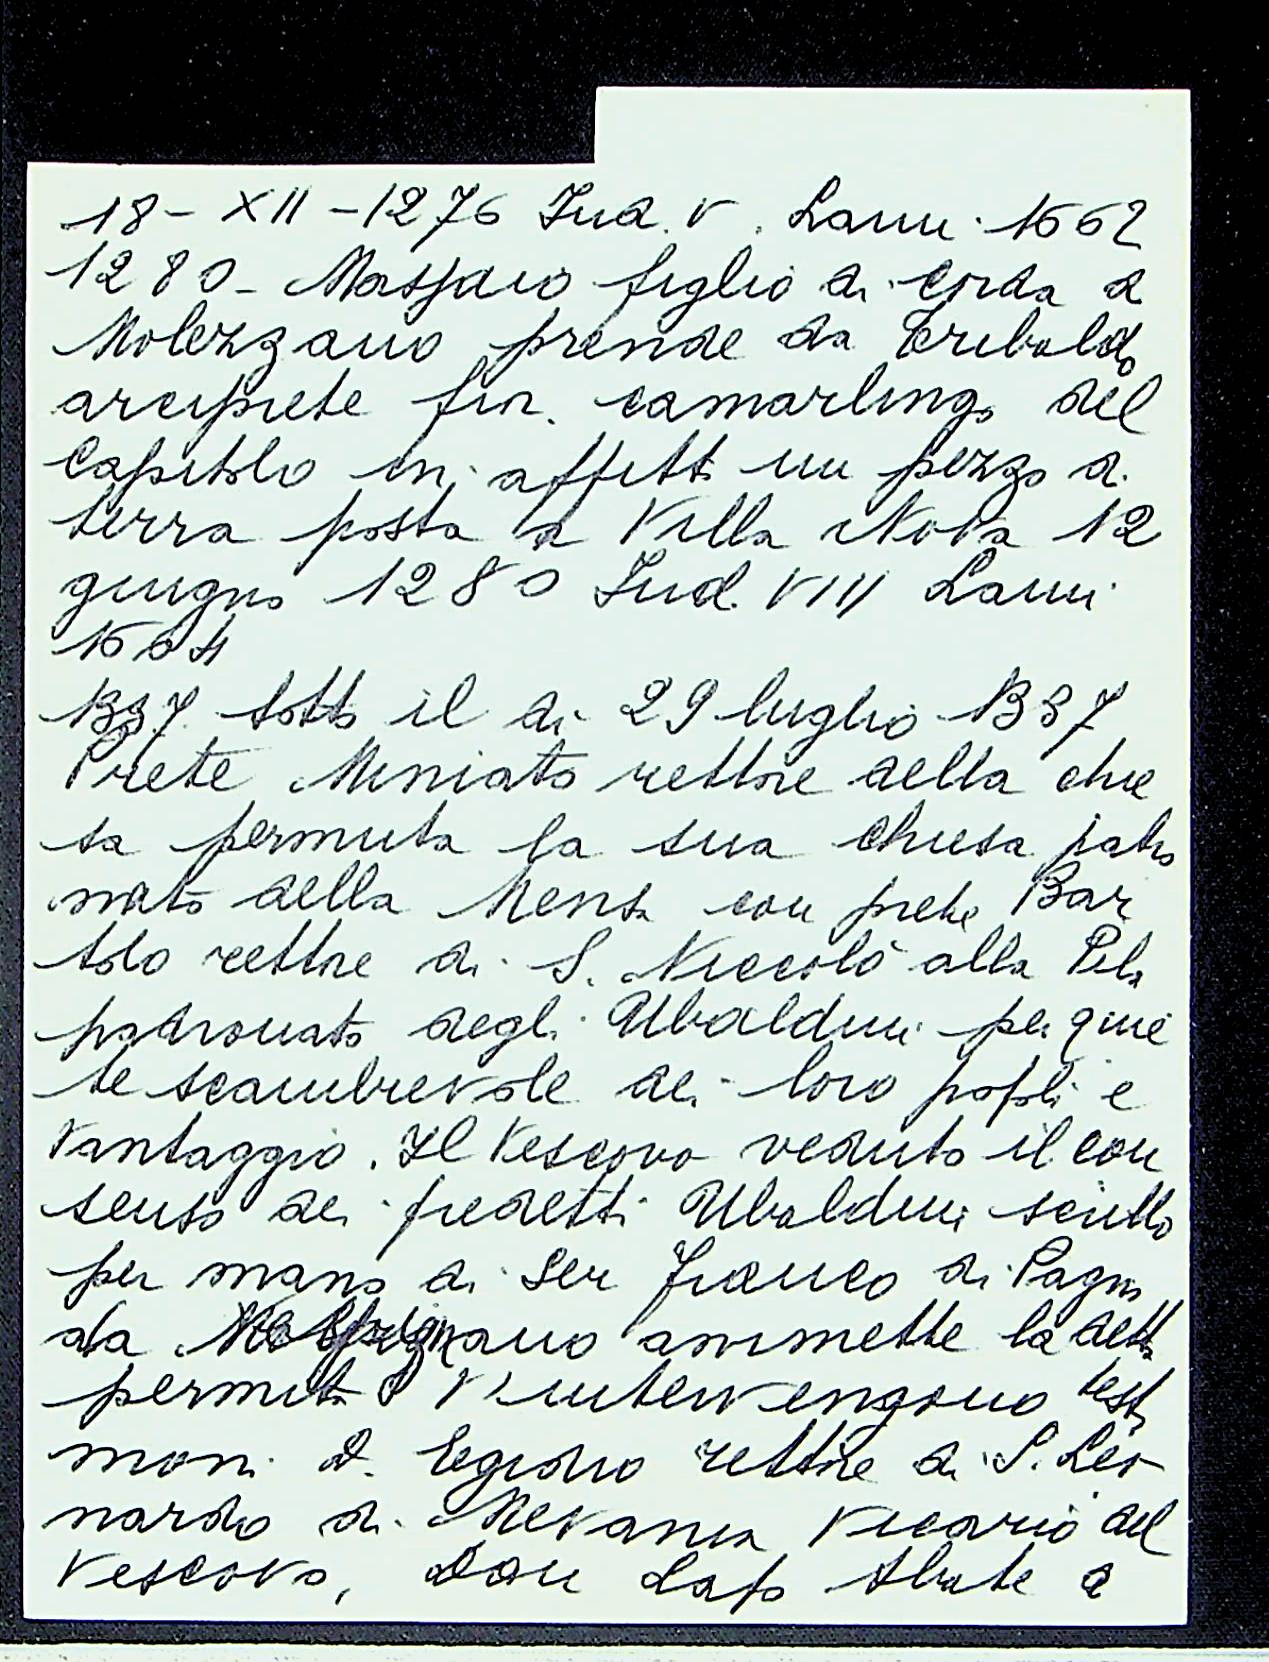 18-XII-1276 Ind. V. Lami. 1662
1280- Massaio figlio di Corda a
Molezzano prende da Teribaldo
arciprete fior. camarlingo del
Capitolo in affitto un pezzo di
terra posta a Villa Nova 12
giugno 1280 Ind. VIII Lami
1664
1337 sotto il dì 29 luglio 1337
Prete Miniato rettore della chie
sa permuta la sua chiesa patro
nato della Mensa con prete Bar
tolo rettore di S. Niccolò alla Pila
patronato degli Ubaldini per quie
te scambievole dei loro popoli e
vantaggio. Il Vescovo veduto il con
senso dei predetti Ubaldini scritto
per mano di Ser Franco di Pagno
da ammette la detta
permuta Vi intervengono testi
moni D. Egidio rettore di S. Leo
nardo di Mevania Vicario del
Vescovo, Don Lapo Abate a